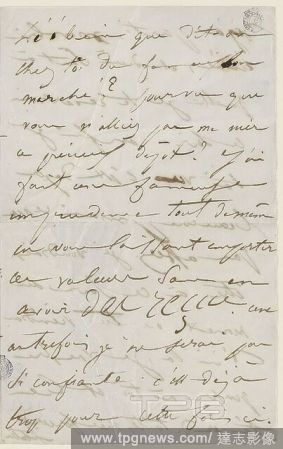 que
chez toi du
marché? pourvu que
vous n'alliez pas me nier
ce précieux dépôt? J'ai
fait une fameuse
imprudence tout de même
en vous laissant emporter
ces valeurs sans en
avoir
autrefois je ne serai pas
si confiante c'est déjà
trop pour cette fois ci.
TPG
www.tpgnews.com/達志影像